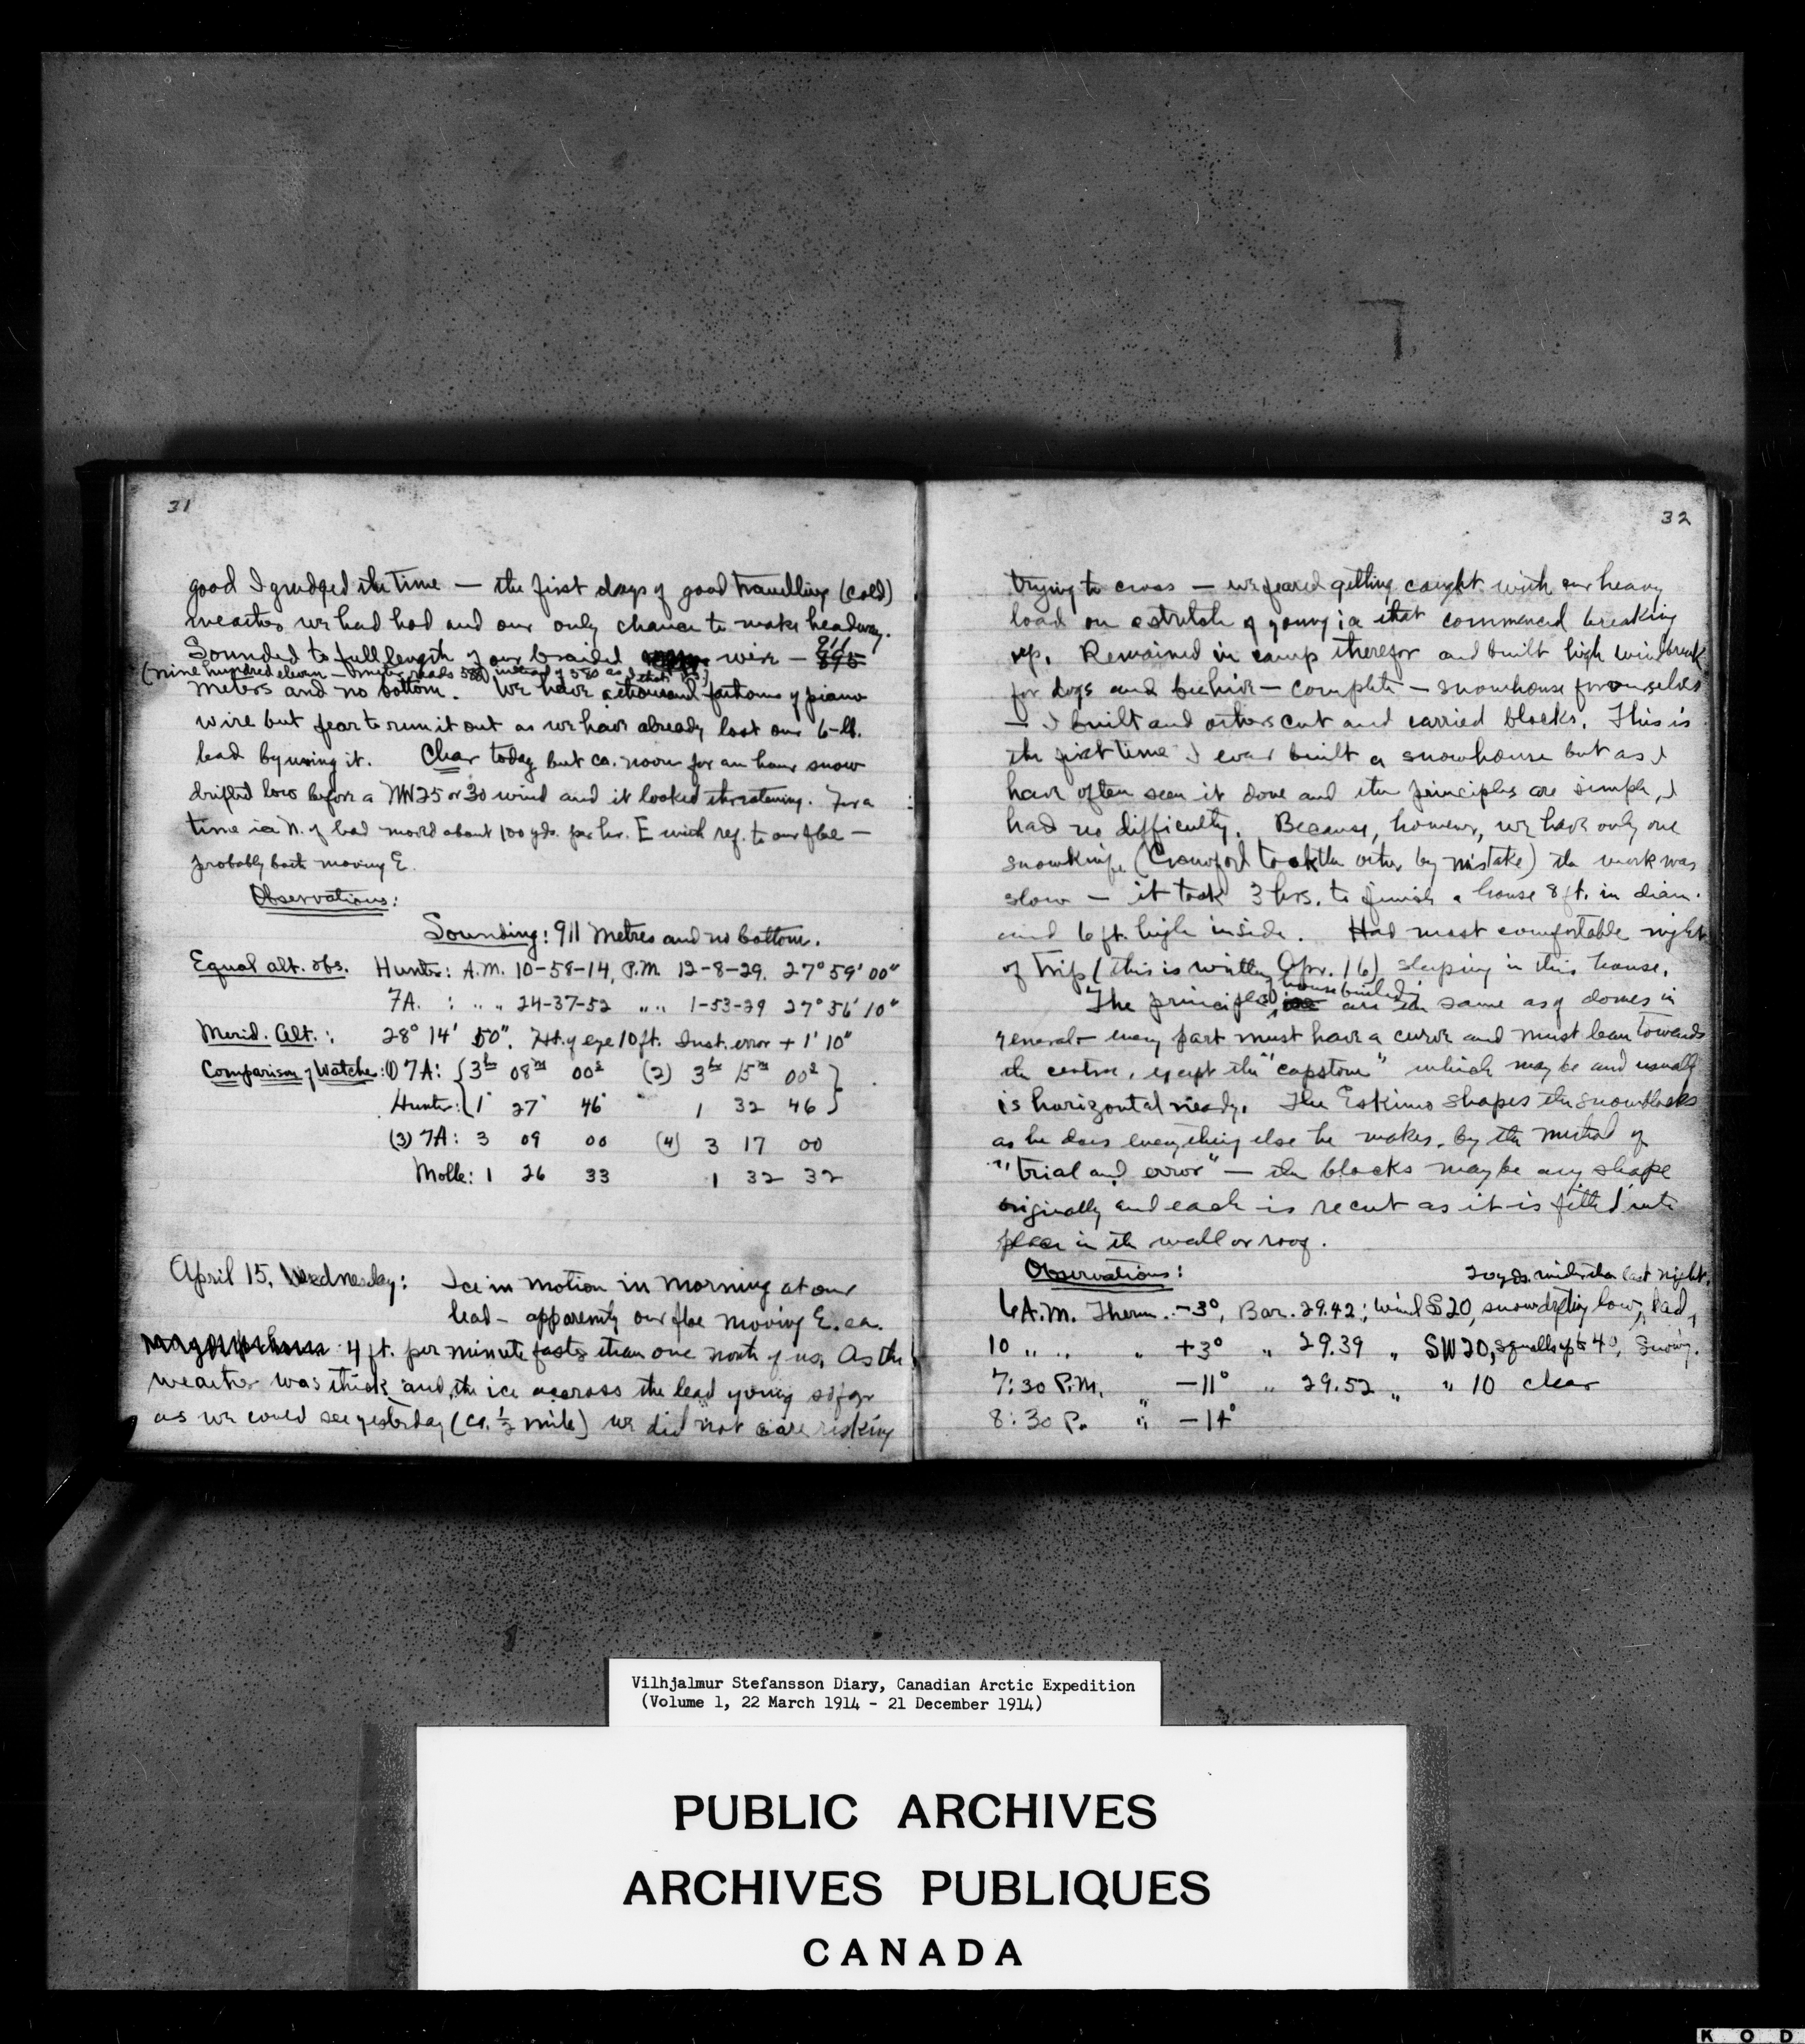 31
good I grudged the time — the first days of good travelling (cold)
weather we had had and our only chance to make headway.
Sounded to full length of our braided wire — 911 895
(nine hundred eleven — meter reads instead of 580 as I
meters and no bottom. We have a thousand fathoms of piano
wire but fear to run it out as we have already lost our 6-lb.
lead by using it. Clear today but ca. noon for an hour snow
drifted low before a NW 25 or 30 wind and it looked threatening. For a
time ice N. of lead moved about 100 yds. per hr. E with ref. to our floe —
probably both moving E.
Observations:
Sounding: 911 Metres and no bottom.
Equal alt. obs. Hunter: A.M. 10-58-14, P.M. 12-8-29. 27° 59' 00"
7A. : " " 24-37-52 " " 1-53-29 27° 56' 10"
Merid. Alt.: 28° 14' 50". Ht. of eye 10 ft. Inst. error + 1' 10"
Comparison of Watches: (1) 7A: { 3h 08m 00s (2) 3h 15m 00s }
Hunter: { 1 27 46 1 32 46 }
(3) 7A: 3 09 00 (4) 3 17 00
Molle: 1 26 33 1 32 32
April 15, Wednesday: Ice in motion in morning at our
lead — apparently our floe moving E. ca.
4 ft. per minute faster than one north of us. As the
weather was thick and the ice across the lead young so far
as we could see yesterday (ca. ½ mile) we did not care risking
32
trying to cross — we feared getting caught with our heavy
load on a stretch of young ice that commenced breaking
up. Remained in camp therefor and built high windbreak
for dogs and beehive — complete — snowhouse for ourselves
— I built and others cut and carried blocks. This is
the first time I ever built a snowhouse but as I
have often seen it done and the principles are simple, I
had no difficulty. Because, however, we have only one
snowknife (Crawford took the other by mistake) the work was
slow — it took 3 hrs. to finish a house 8 ft. in diam.
and 6 ft. high inside. Had most comfortable night
of trip (this is written Apr. 16) sleeping in this house.
housebuilding
The principles of are the same as of domes in
general — every part must have a curve and must lean towards
the centre, except the "capstone" which may be and usually
is horizontal nearly. The Eskimo shapes the snowblocks
as he does everything else he makes, by the method of
"trial and error" — the blocks may be any shape
originally and each is recut as it is fitted into
place in the wall or roof.
Observations: 20 yds. wider than last night.
6 A.M. Therm. -3°, Bar. 29.42; Wind S 20, snow drifting low, lead
10 " " " +3° " 29.39 " SW 20, squalls up to 40, snowing.
7:30 P.M. " -11° " 29.52 " " 10 clear
8:30 P. " -14°
Vilhjalmur Stefansson Diary, Canadian Arctic Expedition
(Volume 1, 22 March 1914 - 21 December 1914)
PUBLIC ARCHIVES
ARCHIVES PUBLIQUES
CANADA
K O D